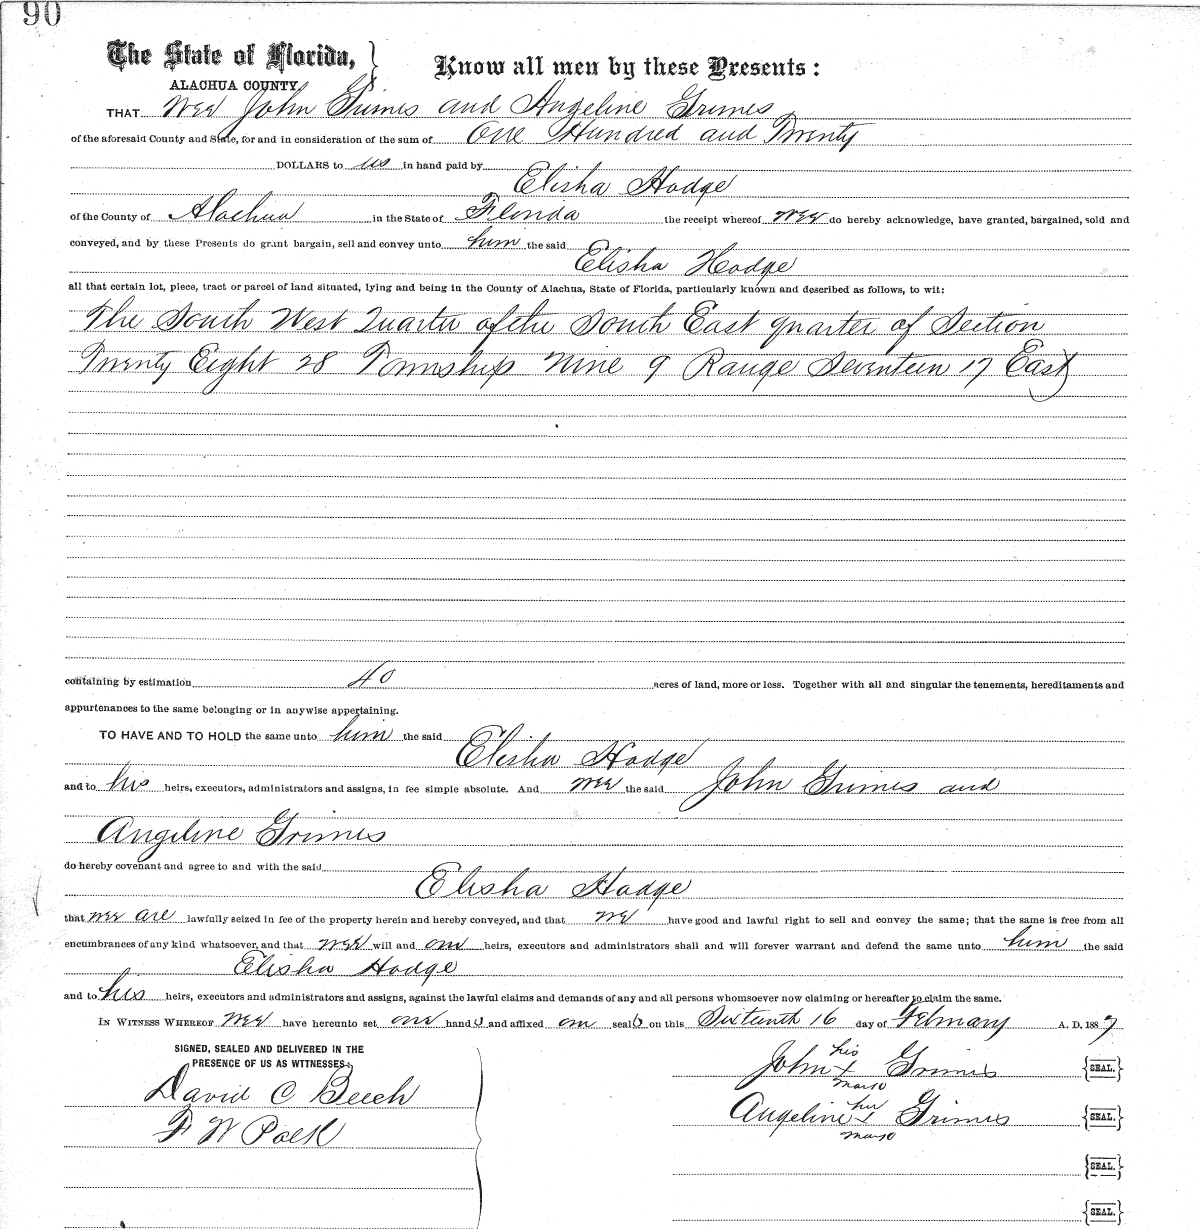 90
The State of Florida, } Know all men by these Presents:
ALACHUA COUNTY
THAT Wee John Grimes and Angeline Grimes
of the aforesaid County and State, for and in consideration of the sum of One Hundred and Twenty
DOLLARS to us in hand paid by
Elisha Hodge
of the County of Alachua in the State of Florida the receipt whereof wee do hereby acknowledge, have granted, bargained, sold and
conveyed, and by these Presents do grant bargain, sell and convey unto him the said
Elisha Hodge
all that certain lot, piece, tract or parcel of land situated, lying and being in the County of Alachua, State of Florida, particularly known and described as follows, to wit:
The South West Quarter of the South East quarter of Section
Twenty Eight 28 Township Nine 9 Range Seventeen 17 East
containing by estimation 40 acres of land, more or less. Together with all and singular the tenements, hereditaments and
appurtenances to the same belonging or in anywise appertaining.
TO HAVE AND TO HOLD the same unto him the said
Elisha Hodge
and to his heirs, executors, administrators and assigns, in fee simple absolute. And wee the said John Grimes and
Angeline Grimes
do hereby covenant and agree to and with the said
Elisha Hodge
that wee are lawfully seized in fee of the property herein and hereby conveyed, and that we have good and lawful right to sell and convey the same; that the same is free from all
encumbrances of any kind whatsoever, and that wee will and our heirs, executors and administrators shall and will forever warrant and defend the same unto him the said
Elisha Hodge
and to his heirs, executors and administrators and assigns, against the lawful claims and demands of any and all persons whomsoever now claiming or hereafter to claim the same.
IN WITNESS WHEREOF Wee have hereunto set our hands and affixed our seals on this Sixteenth 16 day of February A. D. 1887
SIGNED, SEALED AND DELIVERED IN THE
PRESENCE OF US AS WITNESSES:
his
John X Grimes {SEAL.}
mark
David C Beech
her
Angeline X Grimes {SEAL.}
mark
F W Polk
{SEAL.}
{SEAL.}